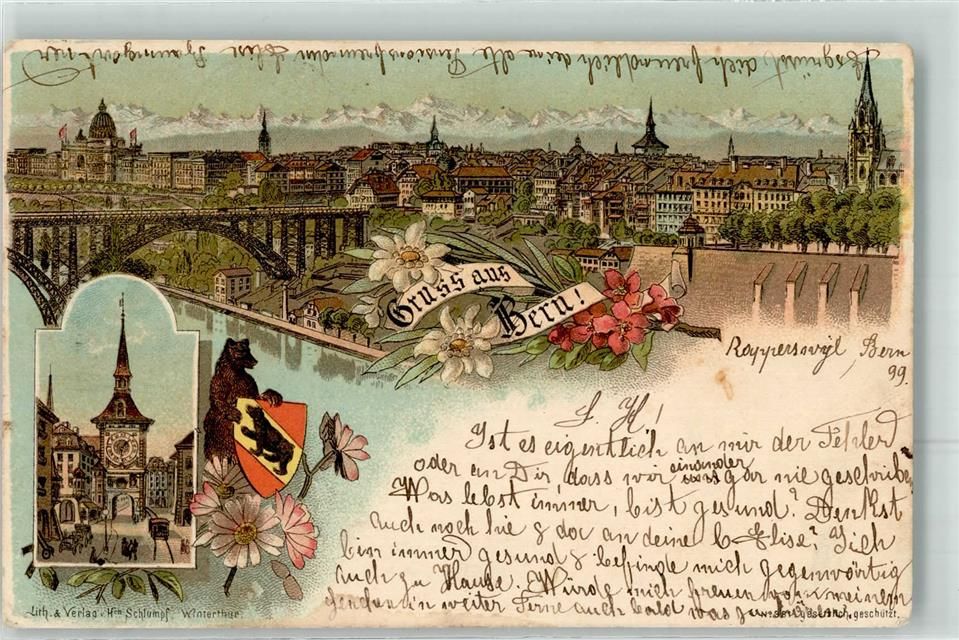 Es grüsst dich freundlich deine alte Pensionsfreundin Elise Baumgartner
Gruss aus
Bern!
Rapperswyl, Bern
99.
L. H!
Ist es eigentlich an mir der Fehler
oder an Dir, dass wir einander gar nie geschrieben
Was lebst immer, bist gesund? Denkst
auch noch hie & da an deine Elise? Ich
bin immer gesund & befinde mich gegenwärtig
auch zu Hause. Würde mich freuen von meinem
in weiter Ferne auch bald was zu
Lith. & Verlag v. Hch Schlumpf, Winterthur.
gesetzlich geschützt.